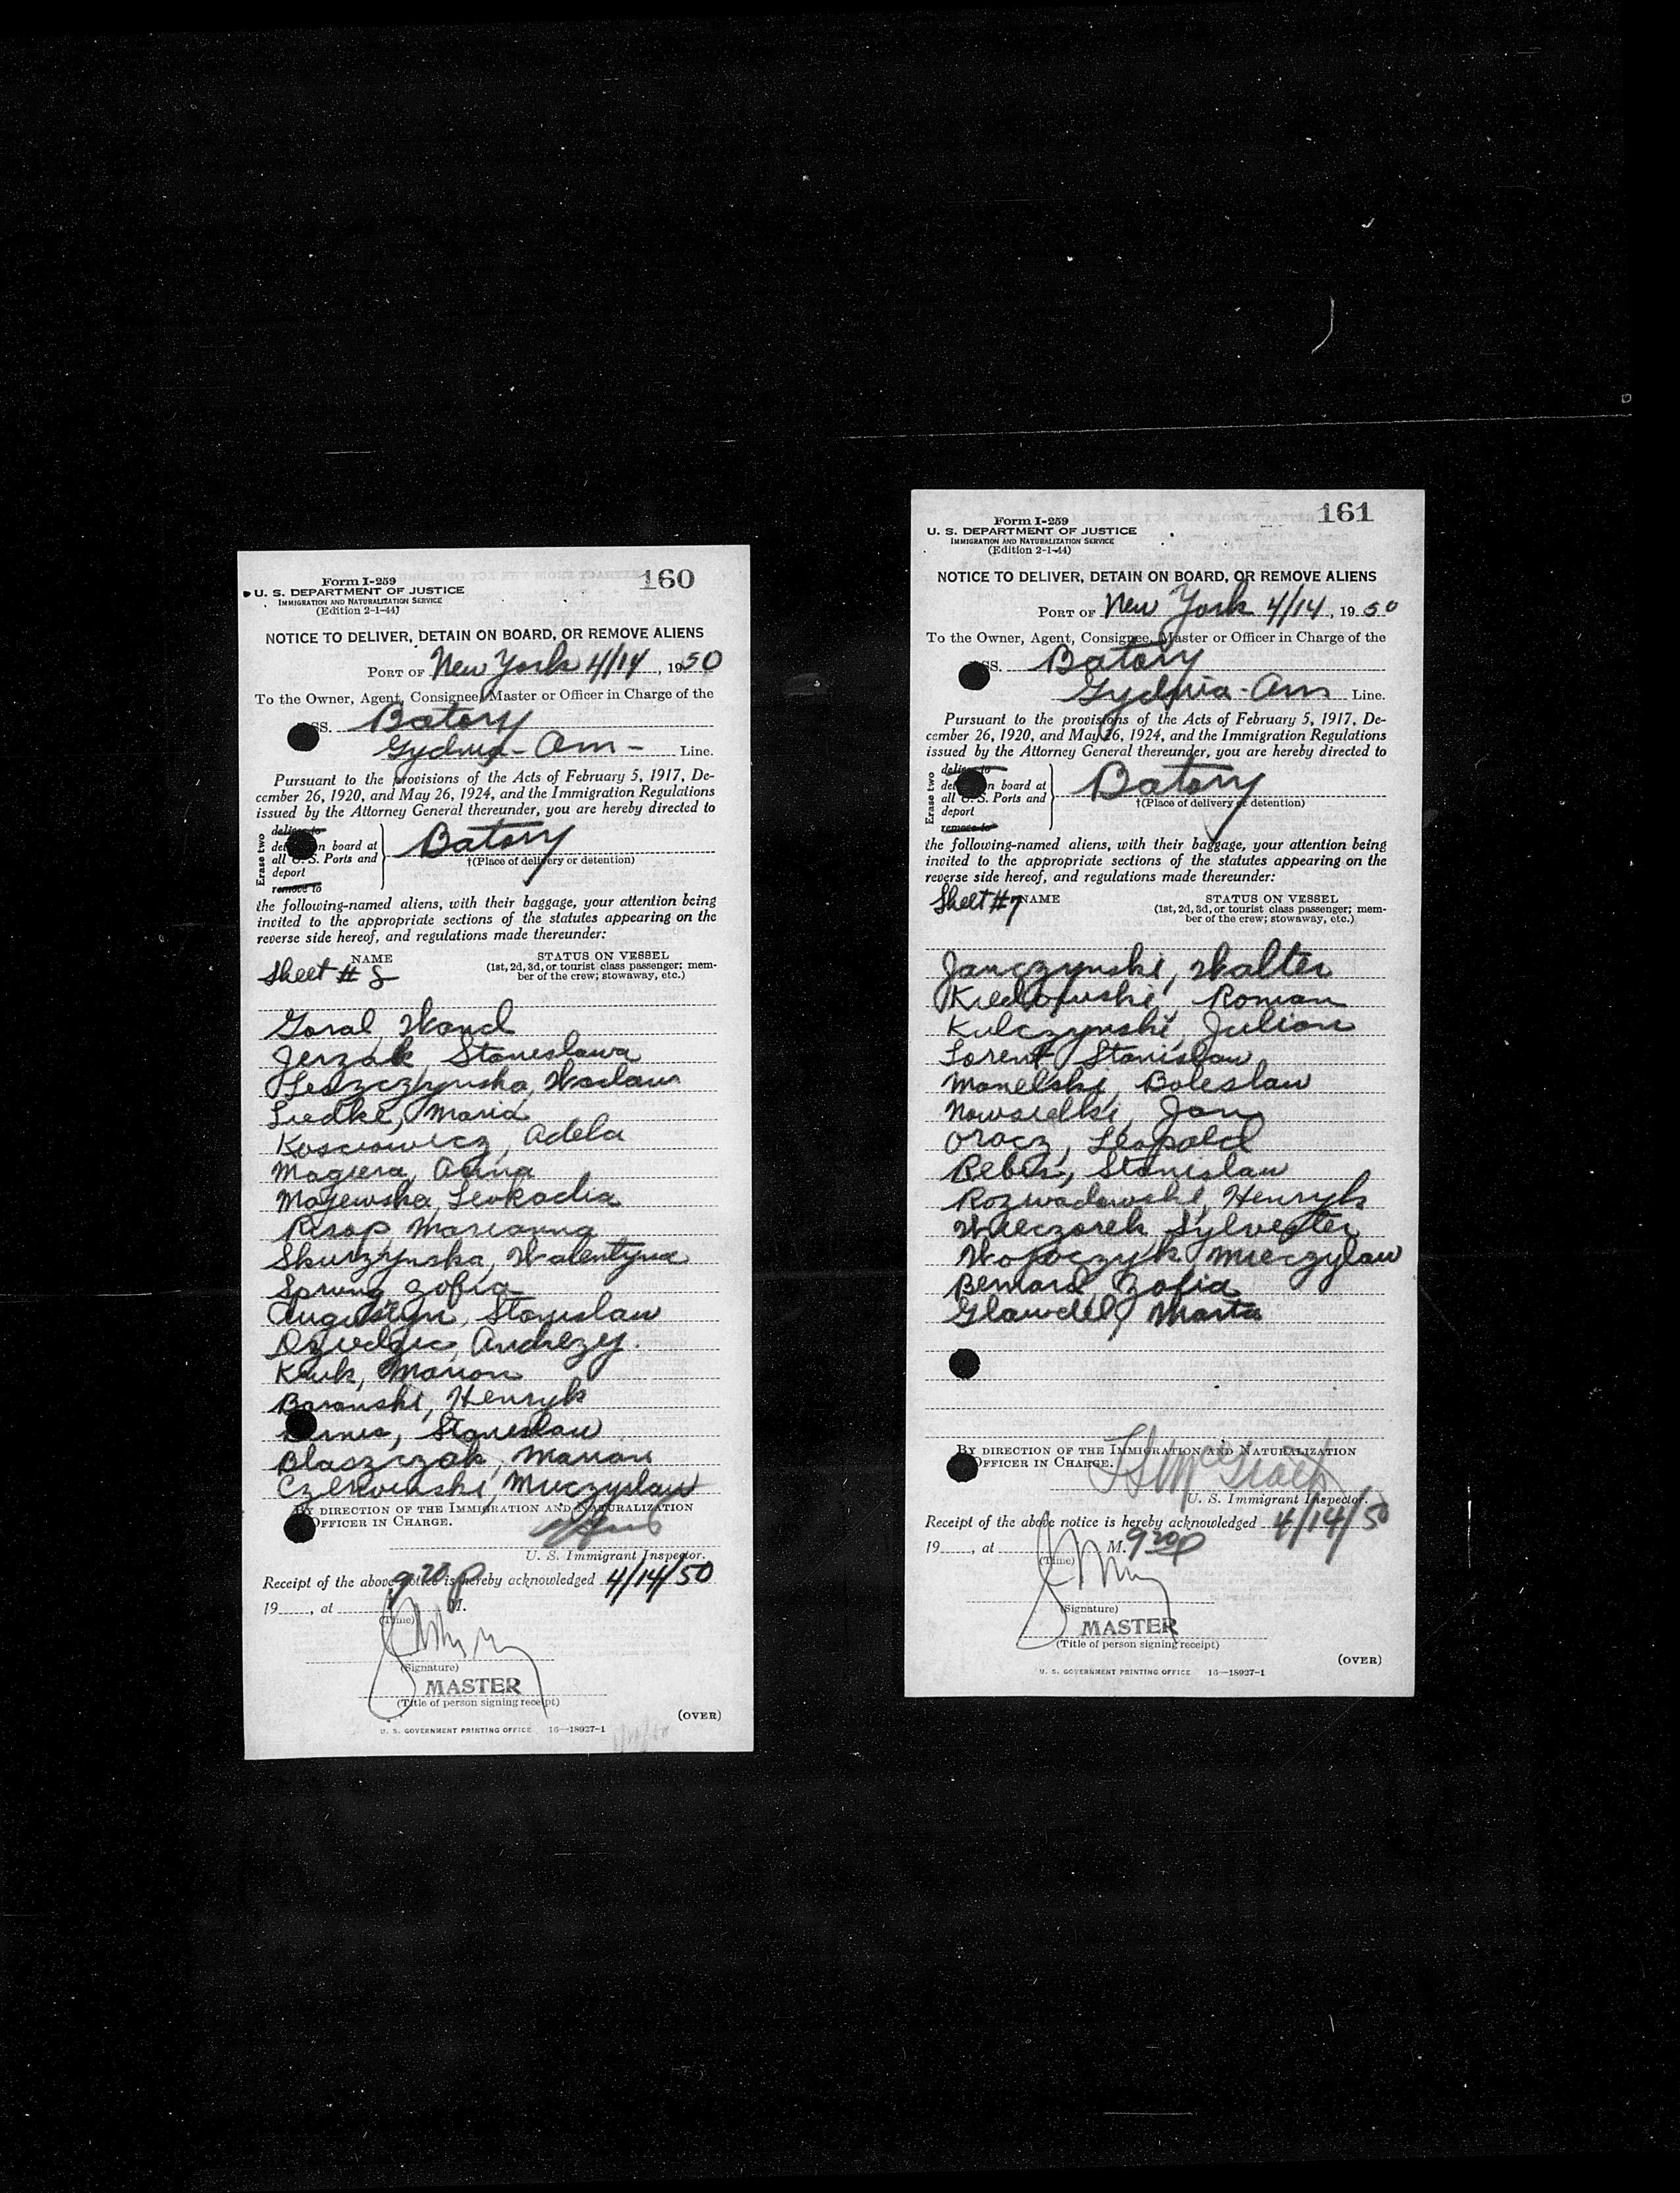 160
Form I-259
U. S. DEPARTMENT OF JUSTICE
IMMIGRATION AND NATURALIZATION SERVICE
(Edition 2-1-44)
NOTICE TO DELIVER, DETAIN ON BOARD, OR REMOVE ALIENS
PORT OF New York 4/14, 1950
To the Owner, Agent, Consignee, Master or Officer in Charge of the
SS. Batory
Gydnia - Am - Line.
Pursuant to the provisions of the Acts of February 5, 1917, De-
cember 26, 1920, and May 26, 1924, and the Immigration Regulations
issued by the Attorney General thereunder, you are hereby directed to
Erase two
deliver to
det n board at
all U. S. Ports and
deport
remove to
Batory
†(Place of delivery or detention)
the following-named aliens, with their baggage, your attention being
invited to the appropriate sections of the statutes appearing on the
reverse side hereof, and regulations made thereunder:
Sheet # 8
NAME
STATUS ON VESSEL
(1st, 2d, 3d, or tourist class passenger; mem-
ber of the crew; stowaway, etc.)
Goral, Wand
Jerzak, Stanislawa
Leszczynska, Waclawa
Liedke, Maria
Kosciowicz, Adela
Magiera, Anna
Majewska, Leokadia
Risop, Marianna
Skurzynska, Walentyna
Sprung, Zofia
Augustyn, Stanislaw
Andrezy
Kruk, Marion
Baranski, Henryk
Stanislaw
Blaszczak, Marian
Czerwinski, Mieczyslaw
BY DIRECTION OF THE IMMIGRATION AND NATURALIZATION
OFFICER IN CHARGE.
U. S. Immigrant Inspector.
Receipt of the above notice is hereby acknowledged 4/14/50
19____, at 9 20 P M.
(Time)
(Signature)
MASTER
(Title of person signing receipt)
(OVER)
U. S. GOVERNMENT PRINTING OFFICE 16—18927-1
161
Form I-259
U. S. DEPARTMENT OF JUSTICE
IMMIGRATION AND NATURALIZATION SERVICE
(Edition 2-1-44)
NOTICE TO DELIVER, DETAIN ON BOARD, OR REMOVE ALIENS
PORT OF New York 4/14, 1950
To the Owner, Agent, Consignee, Master or Officer in Charge of the
SS. Batory
Gydnia - Am Line.
Pursuant to the provisions of the Acts of February 5, 1917, De-
cember 26, 1920, and May 26, 1924, and the Immigration Regulations
issued by the Attorney General thereunder, you are hereby directed to
Erase two
deliver to
det n board at
all U. S. Ports and
deport
remove to
Batory
†(Place of delivery or detention)
the following-named aliens, with their baggage, your attention being
invited to the appropriate sections of the statutes appearing on the
reverse side hereof, and regulations made thereunder:
Sheet #7
NAME
STATUS ON VESSEL
(1st, 2d, 3d, or tourist class passenger; mem-
ber of the crew; stowaway, etc.)
Janczynski, Walter
Roman
Kulczynski, Julian
Lorent, Stanislaw
Manelski, Boleslaw
Nowsielski, Jan
Oracz, Leopold
Stanislaw
Rozwadowski, Henryk
Wieczorek, Sylvester
Mieczylaw
Bernard, Zofia
Glawdel, Marta
BY DIRECTION OF THE IMMIGRATION AND NATURALIZATION
OFFICER IN CHARGE.
U. S. Immigrant Inspector.
Receipt of the above notice is hereby acknowledged 4/14/50
19____, at M. 9 20 P
(Time)
(Signature)
MASTER
(Title of person signing receipt)
(OVER)
U. S. GOVERNMENT PRINTING OFFICE 16—18927-1